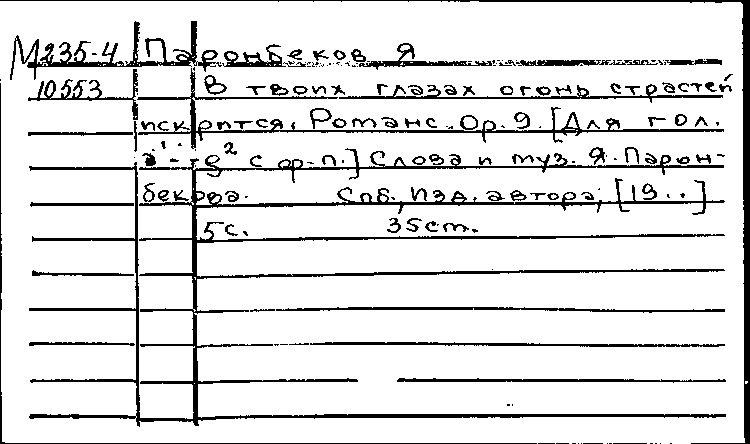 М235-4 Паронбеков Я
10553 В твоих глазах огонь страстей
искрится. Романс. Ор. 9. [Для гол.
a¹-g² с ф-п.] Слова и муз. Я. Парон-
бекова. Спб., Изд. автора, [19..]
5с. 35ст.